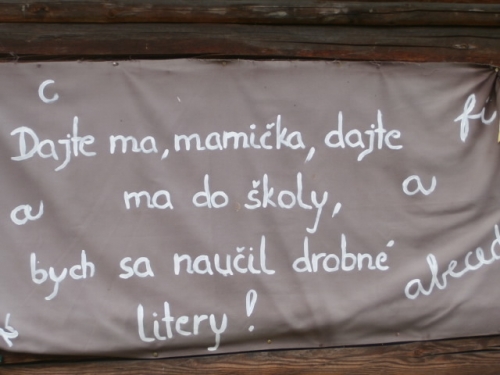 c
fi
Dajte ma, mamička, dajte
ma do školy,
a
a
bych sa naučil drobné
abeced
litery!